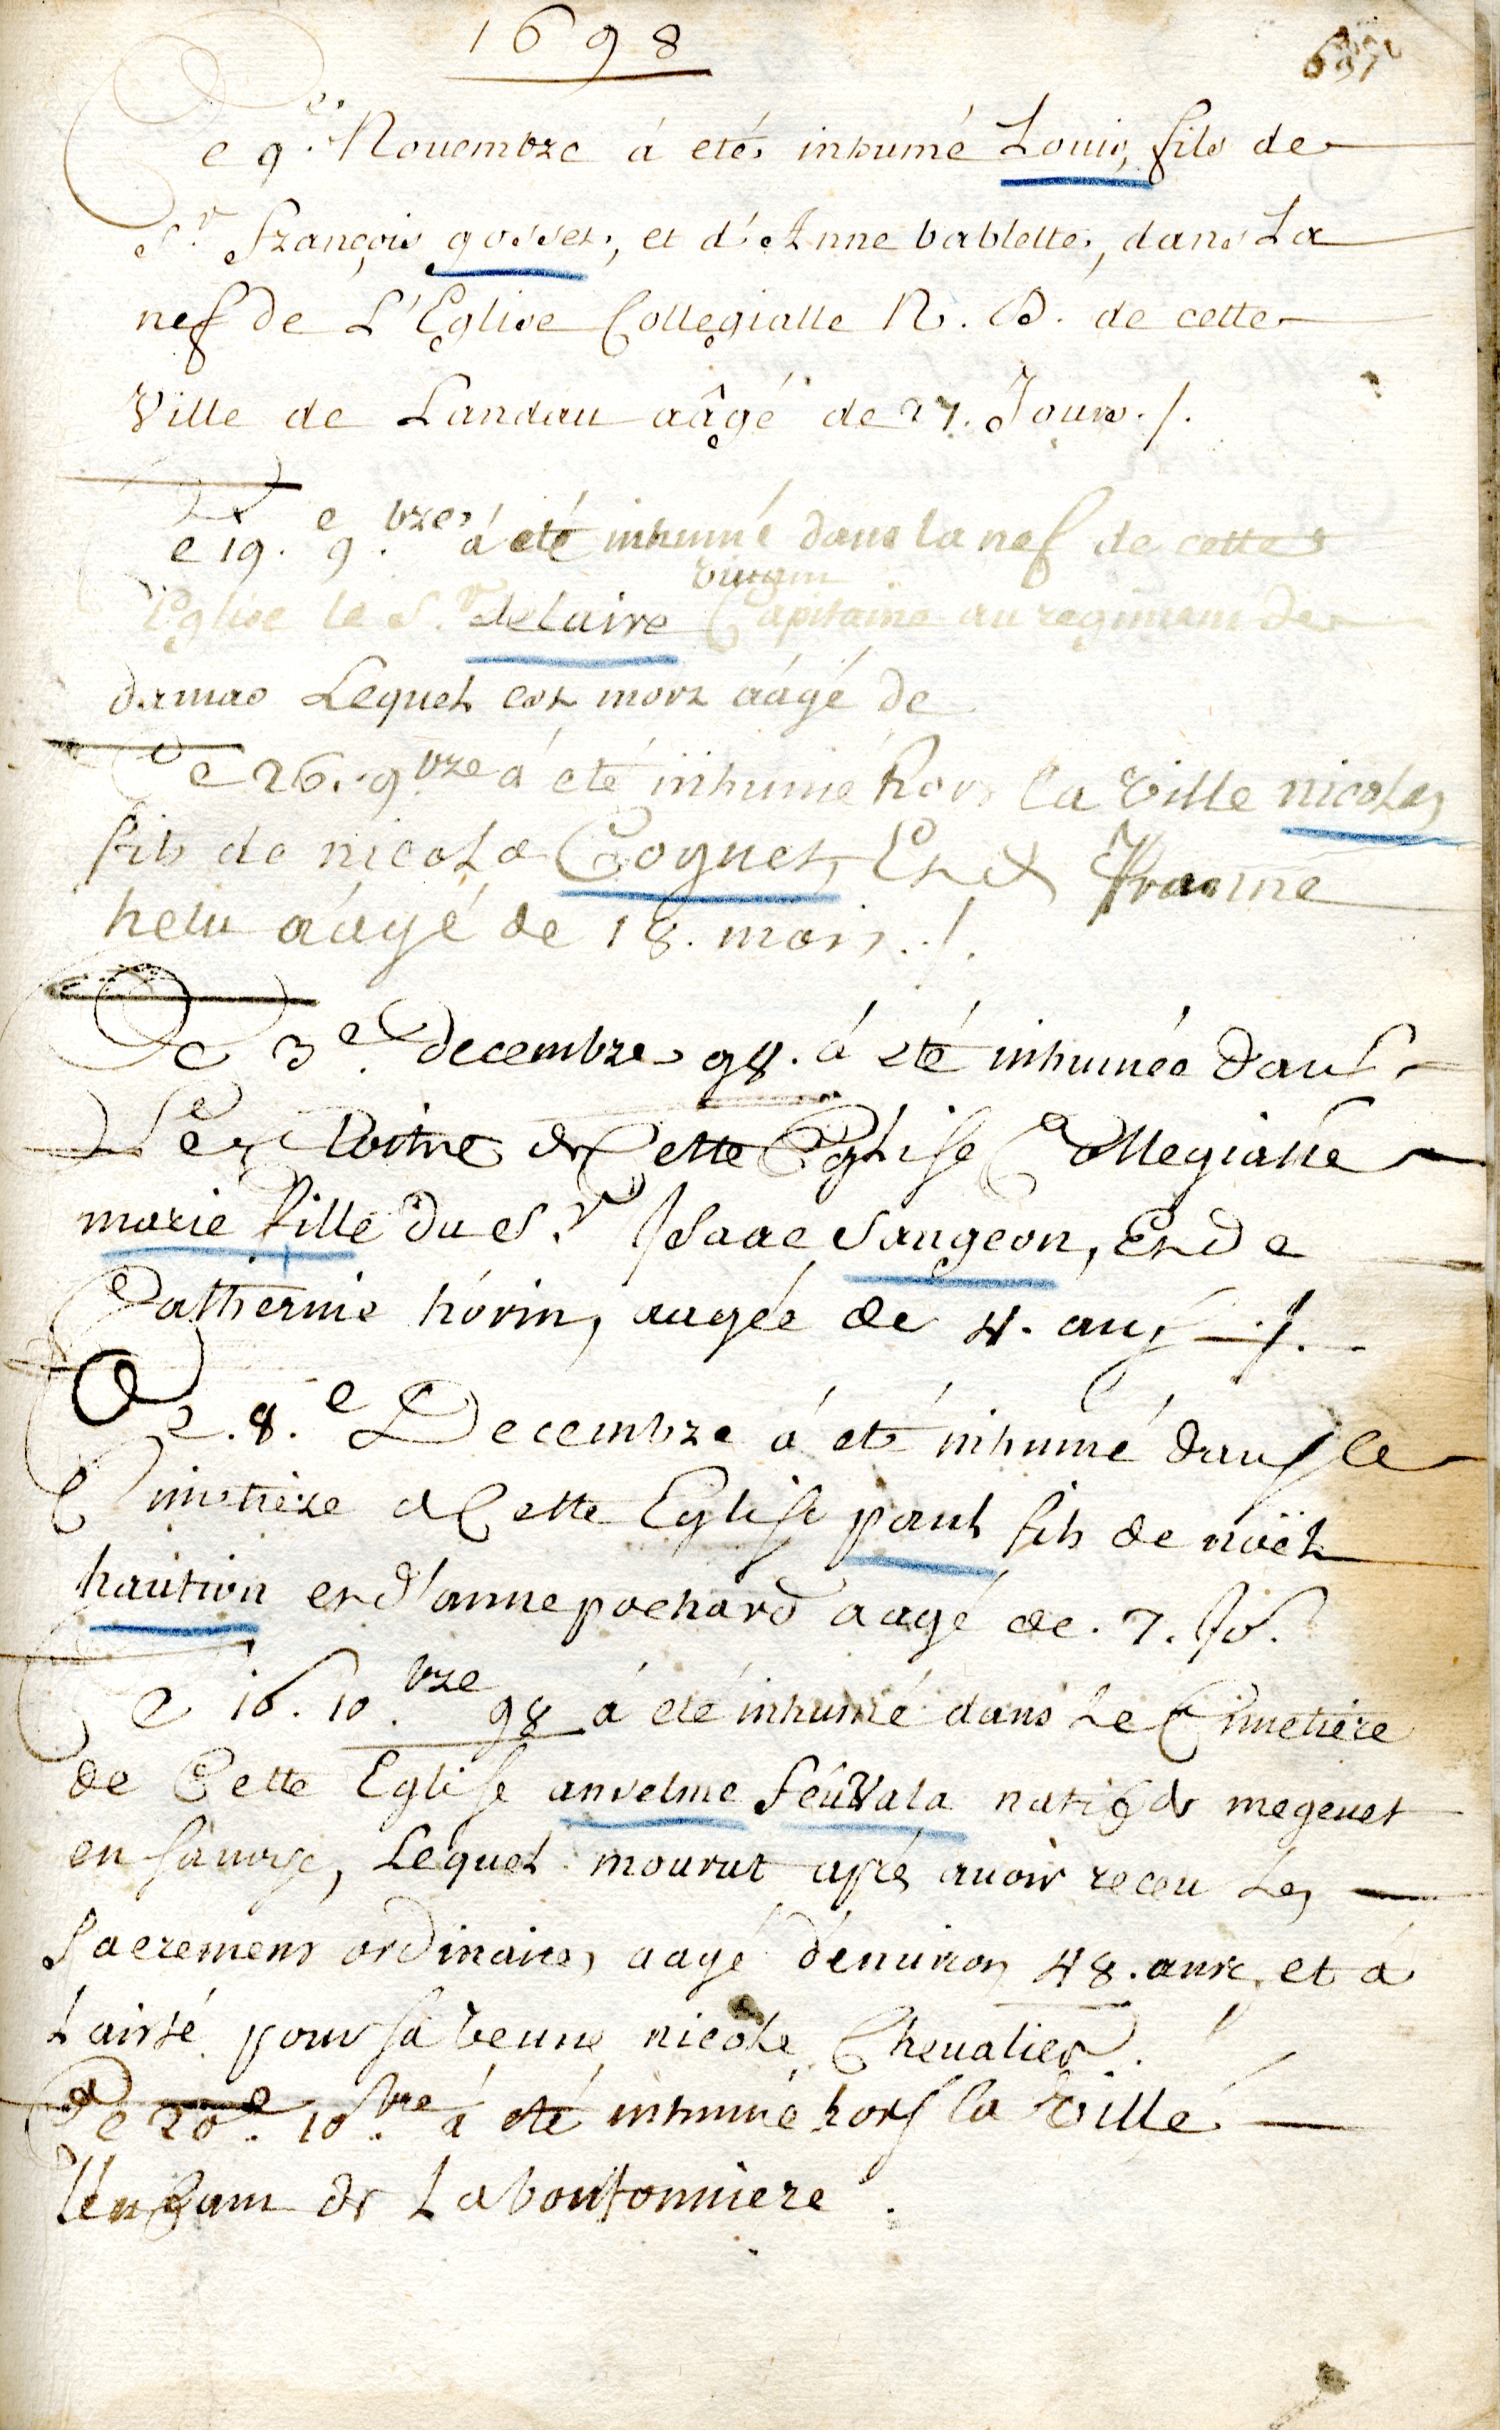 1698
Le 9.e Nouembre á eté inhumé Louis, fils de
Sr. François gosset, et d'Anne bablette, dans La
nef de L'Eglise Collegialle N. D. de cette
Ville de Landau aâgé de 27. Jours ./.
Le 19.e 9.bre á eté inhumé dans la nef de cette
Eglise le Sr. delaire Capitaine au regiment de
damas Lequel est mort aágé de
Le 26. 9.bre á été inhumé hors la Ville nicolas
fils de nicolas Cognet, Et d
helu aágé de 18. mois ./.
Le 3.e decembre 98. á eté inhumée dans
Le Cloitre de Cette Eglise Collegialle
marie fille du Sr. Isaac Sangeon, Et de
Catherine hórin, aagée de 4. ans ./.
Le 8.e Decembre á eté inhumé dans le
Cimetiere de Cette Eglise paul fils de noël
haution et d'anne pochard aagé de 7. Jo.
Le 16. 10.bre 98 á eté inhumé dans Le Cimetiere
de Cette Eglise anselme feúVala natif de megeuet
en sauoye, Lequel mourut aprés auoir receu Les
Sacremens ordinaires aagé d'enuiron 48. ans, et á
Laissé pour sa veuue nicole Cheualier.
Le 20.e 10.bre á eté inhumé hors la Ville
Un Enfant de Laboutonniere.